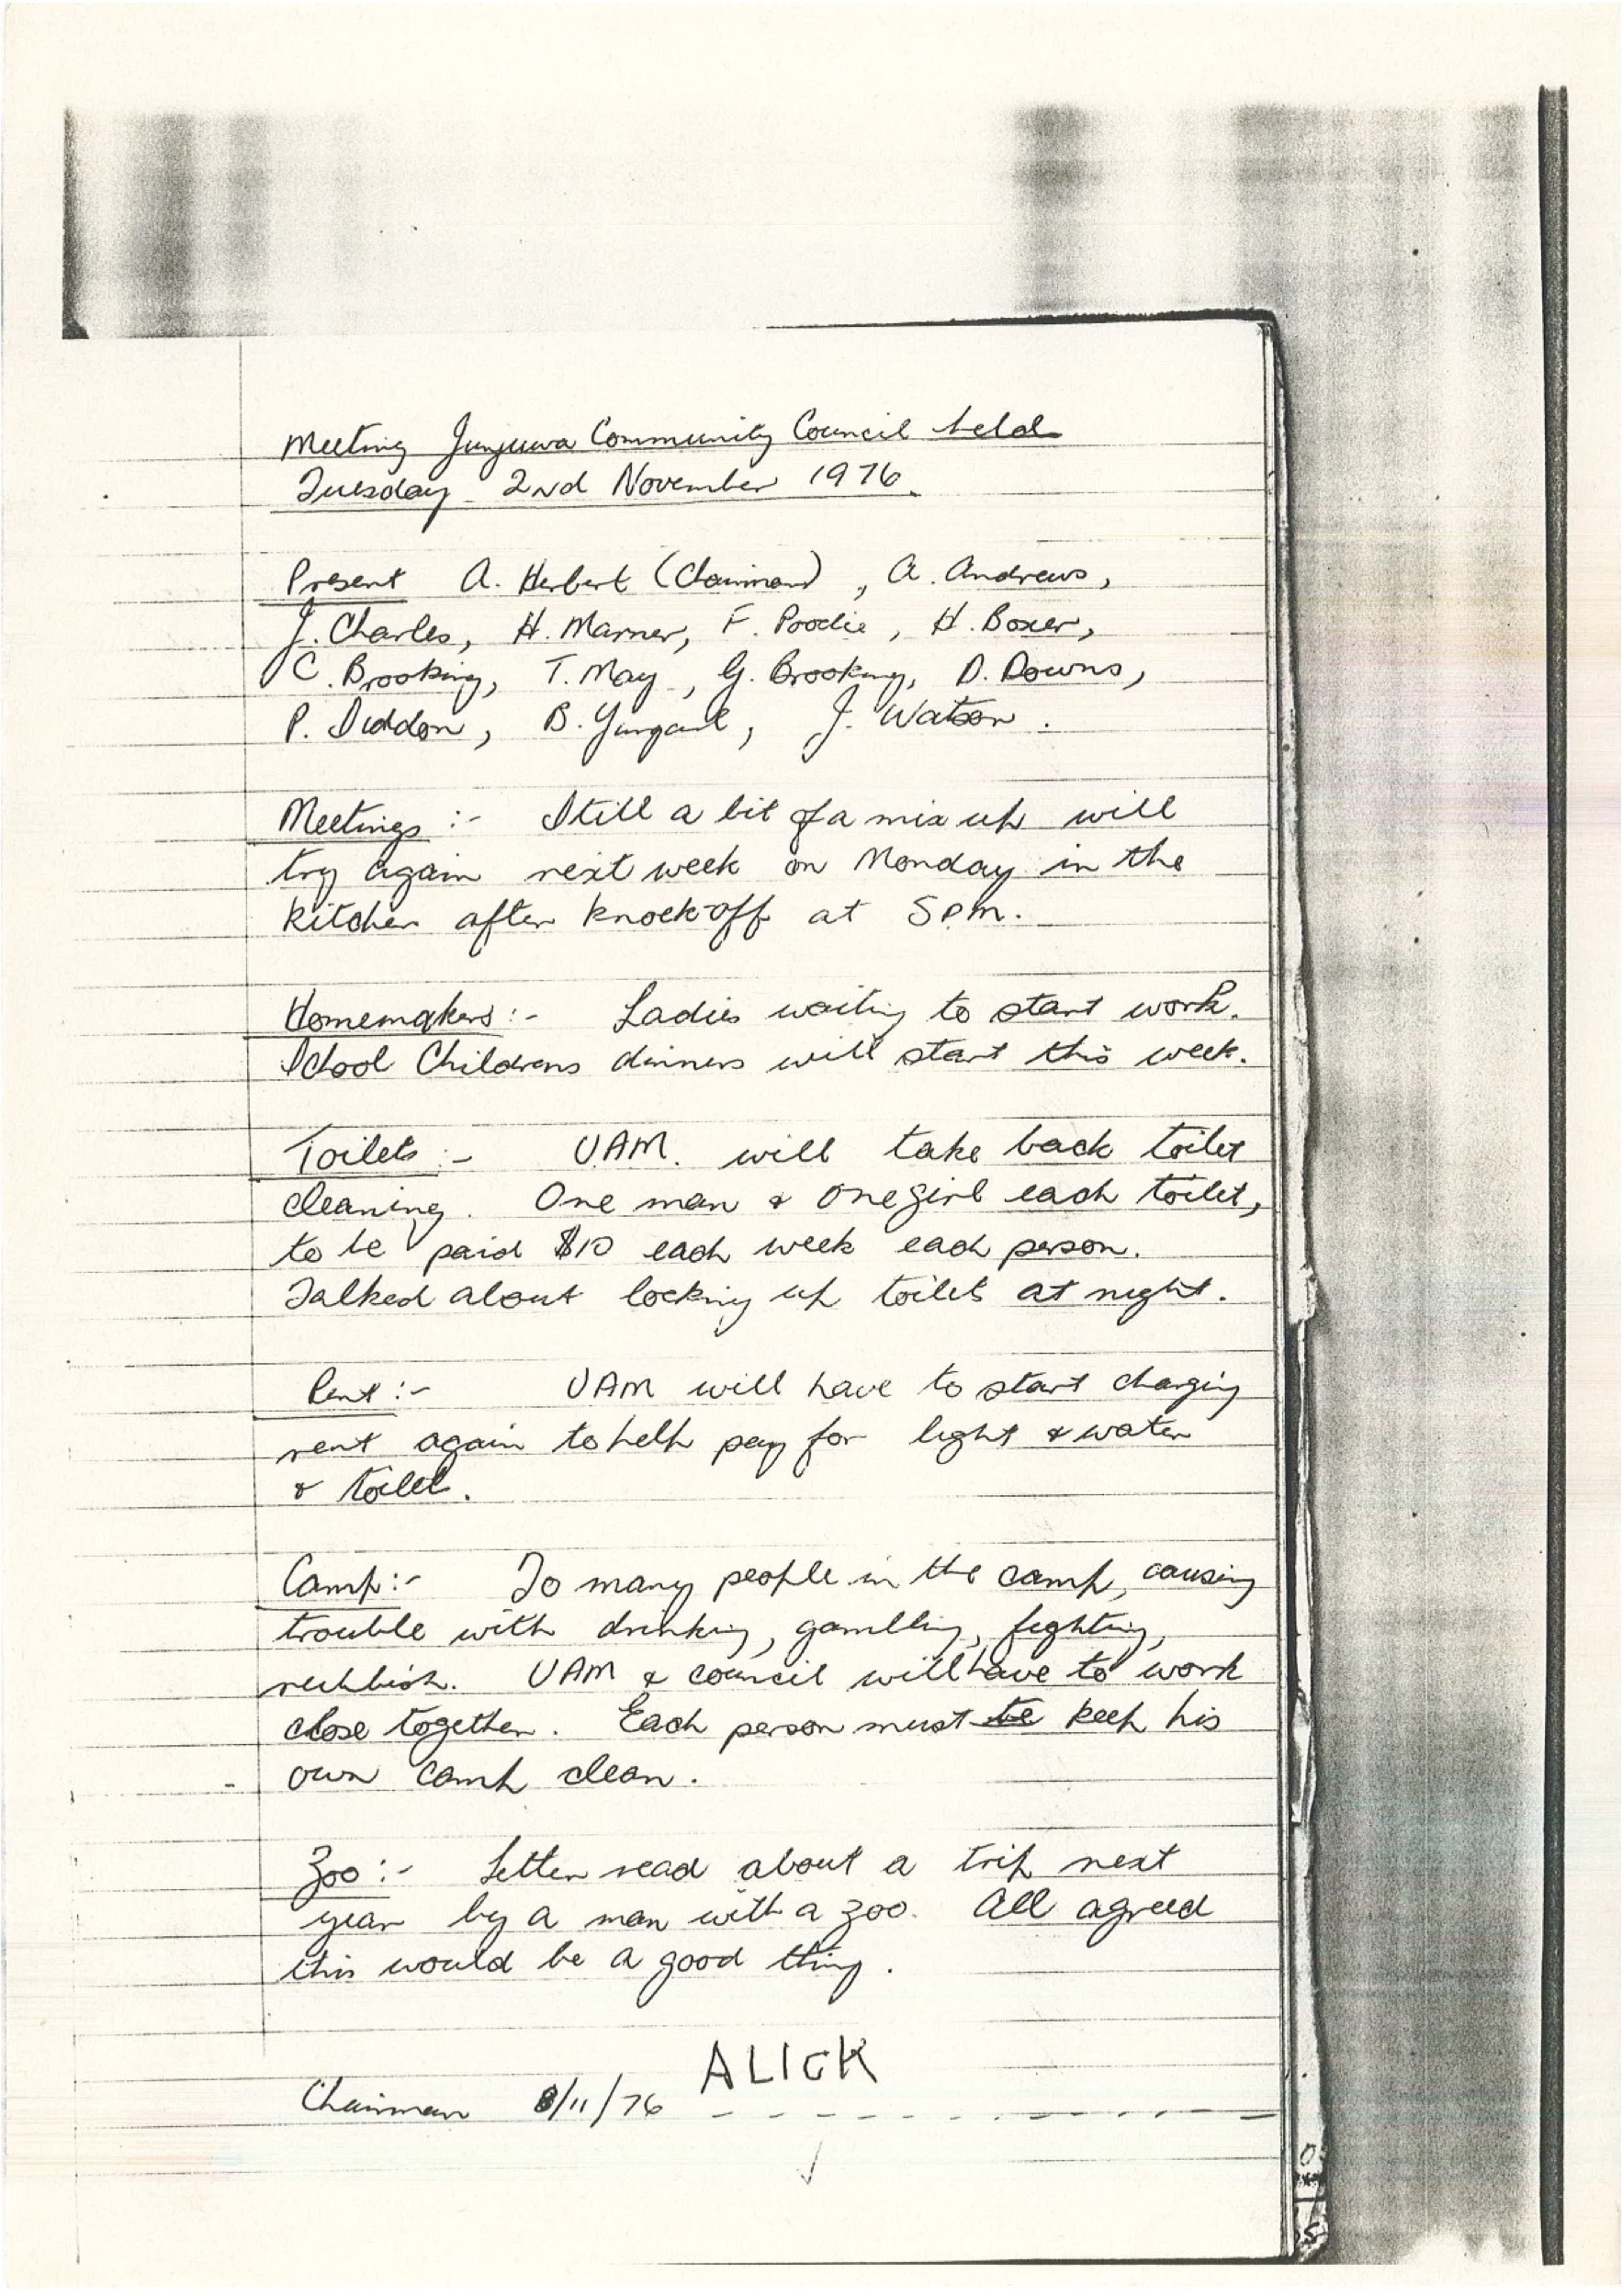 Meeting Junjuwa Community Council held
Tuesday 2nd November 1976.
Present A. Herbert (Chairman), A. Andrews,
J. Charles, H. Marner, F. Poodie, H. Boxer,
C. Brooking, T. May, G. Brooking, D. Downs,
P. Siddon, B. J. Watson.
Meetings :- Still a bit of a mix up will
try again next week on Monday in the
kitchen after knock-off at 5pm.
Homemakers :- Ladies waiting to start work.
School Childrens dinners will start this week.
Toilets :- UAM. will take back toilet
cleaning. One man & one girl each toilet,
to be paid $10 each week each person.
Talked about locking up toilets at night.
Rent :- UAM will have to start charging
rent again to help pay for light & water
& toilet.
Camp :- To many people in the camp, causing
trouble with drinking, gambling, fighting,
rubbish. UAM & council will have to work
close together. Each person must be keep his
own camp clean.
Zoo :- Letter read about a trip next
year by a man with a zoo. All agreed
this would be a good thing.
ALICK
Chairman 8/11/76